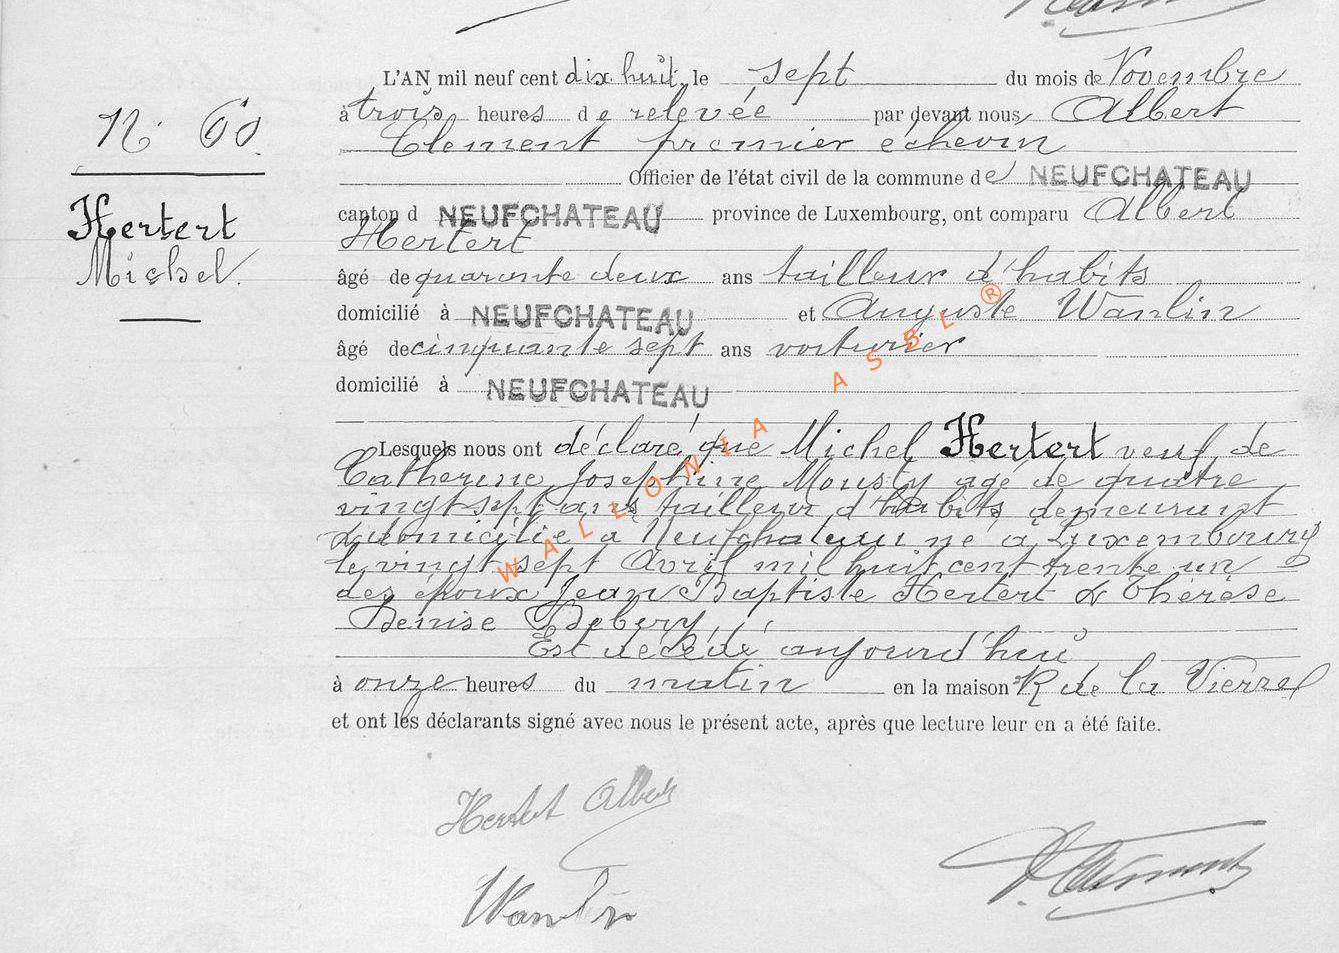 L'AN mil neuf cent dix huit, le sept du mois de Novembre
à trois heures de relevée par devant nous Albert
Clement premier échevin
Officier de l'état civil de la commune de NEUFCHATEAU
N° 60
canton d NEUFCHATEAU province de Luxembourg, ont comparu Albert
Hertert
Hertert
Michel.
âgé de quarante deux ans tailleur d'habits
domicilié à NEUFCHATEAU et Auguste Wanlin
âgé de cinquante sept ans voiturier
domicilié à NEUFCHATEAU
Lesquels nous ont déclaré que Michel Hertert veuf de
Catherine Josephine Mousty agé de quatre
vingt sept ans tailleur d'habits demeurant
& domicilié à Neufchateau né à Luxembourg
le vingt sept Avril mil huit cent trente un
des époux Jean Baptiste Hertert & Thérèse
Denise
Est décédé aujourd'hui
à onze heures du matin en la maison R de la Vierre
et ont les déclarants signé avec nous le présent acte, après que lecture leur en a été faite.
Hertert Albert
Wanlin
Clement
WALLONIA ASBL ®